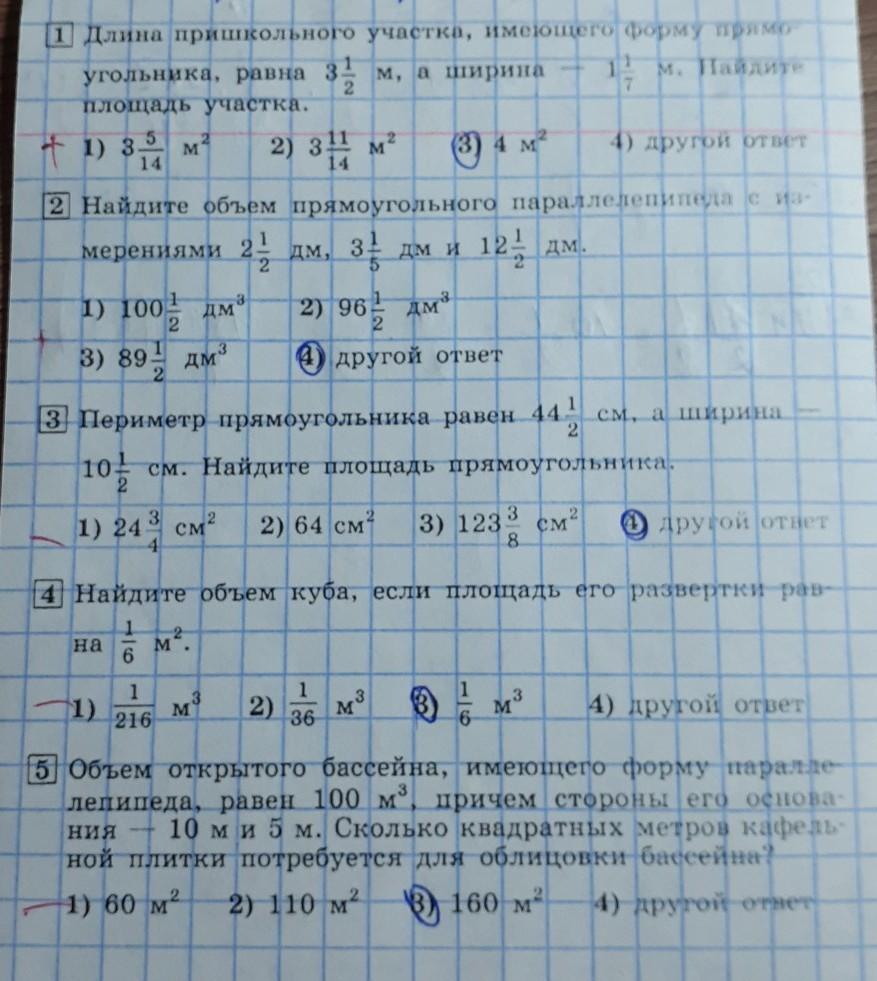 1 Длина пришкольного участка, имеющего форму прямо-
угольника, равна 3 1/2 м, а ширина — 1 1/7 м. Найдите
площадь участка.
+ 1) 3 5/14 м² 2) 3 11/14 м² 3) 4 м² 4) другой ответ
2 Найдите объем прямоугольного параллелепипеда с из-
мерениями 2 1/2 дм, 3 1/5 дм и 12 1/2 дм.
1) 100 1/2 дм³ 2) 96 1/2 дм³
+ 3) 89 1/2 дм³ 4) другой ответ
3 Периметр прямоугольника равен 44 1/2 см, а ширина —
10 1/2 см. Найдите площадь прямоугольника.
— 1) 24 3/4 см² 2) 64 см² 3) 123 3/8 см² 4) другой ответ
4 Найдите объем куба, если площадь его развертки рав-
на 1/6 м².
— 1) 1/216 м³ 2) 1/36 м³ 3) 1/6 м³ 4) другой ответ
5 Объем открытого бассейна, имеющего форму паралле-
лепипеда, равен 100 м³, причем стороны его основа-
ния — 10 м и 5 м. Сколько квадратных метров кафель-
ной плитки потребуется для облицовки бассейна?
— 1) 60 м² 2) 110 м² 3) 160 м² 4) другой ответ